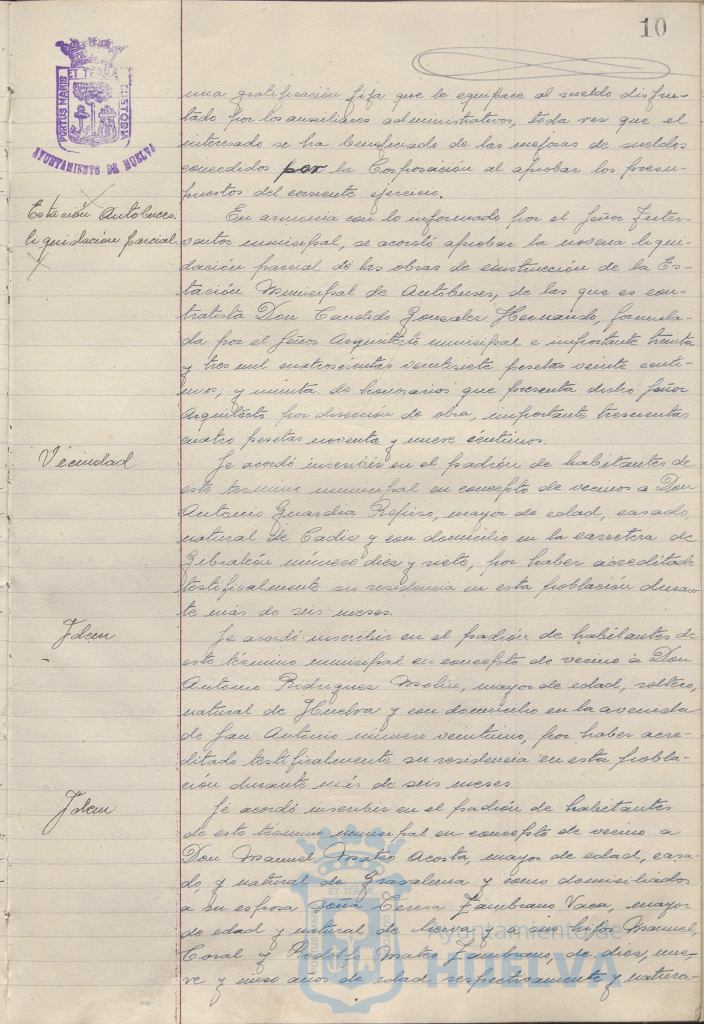 10
ET TERRA
PORTUS MARIS
CUSTODIA
AYUNTAMIENTO DE HUELVA
una gratificación fija que le equipare al sueldo disfru-
tado por los auxiliares administrativos, toda vez que el
interesado se ha beneficiado de las mejoras de sueldos
concedidos por la Corporación al aprobar los presu-
puestos del corriente ejercicio.
Estación Autobuses.
liquidación parcial
En armonia con lo informado por el Señor Inter-
ventor municipal, se acordó aprobar la novena liqui-
dación parcial de las obras de construcción de la Es-
tación Municipal de Autobuses, de las que es con-
tratista Don Candido Gonzalez Hernando, formula-
da por el Señor Arquitecto municipal e importante treinta
y tres mil cuatrocientas veintisiete pesetas veinte centi-
mos, y minuta de honorarios que presenta dicho Señor
Arquitecto por dirección de obra, importante trescientas
cuatro pesetas noventa y nueve céntimos.
Vecindad
Se acordó inscribir en el padrón de habitantes de
este termino municipal en concepto de vecinos a Don
Antonio Guardia Repiso, mayor de edad, casado,
natural de Cadiz y con domicilio en la carretera de
Gibraleón número diez y siete, por haber acreditado
testificalmente su residencia en esta población duran-
te más de seis meses.
Idem
Se acordó inscribir en el padrón de habitantes de
este término municipal en concepto de vecino a Don
Antonio Rodriguez Molin, mayor de edad, soltero,
natural de Huelva y con domicilio en la avenida
de San Antonio número veintiuno, por haber acre-
ditado testificalmente su residencia en esta pobla-
ción durante más de seis meses.
Idem
Se acordó inscribir en el padrón de habitantes
de este término municipal en concepto de vecino a
Don Manuel Mateo Acosta, mayor de edad, casa-
do y natural de Grazalema y como domiciliados
a su esposa Doña Teresa Zambrano Vaca, mayor
de edad y natural de y a sus hijos Manuel,
Coral y Rodolfo Mateo Zambrano, de diez, nue-
ve y cinco años de edad respectivamente y natura-
ET TERRA
PORTUS MARIS
CUSTODIA
Ayuntamiento de
HUELVA